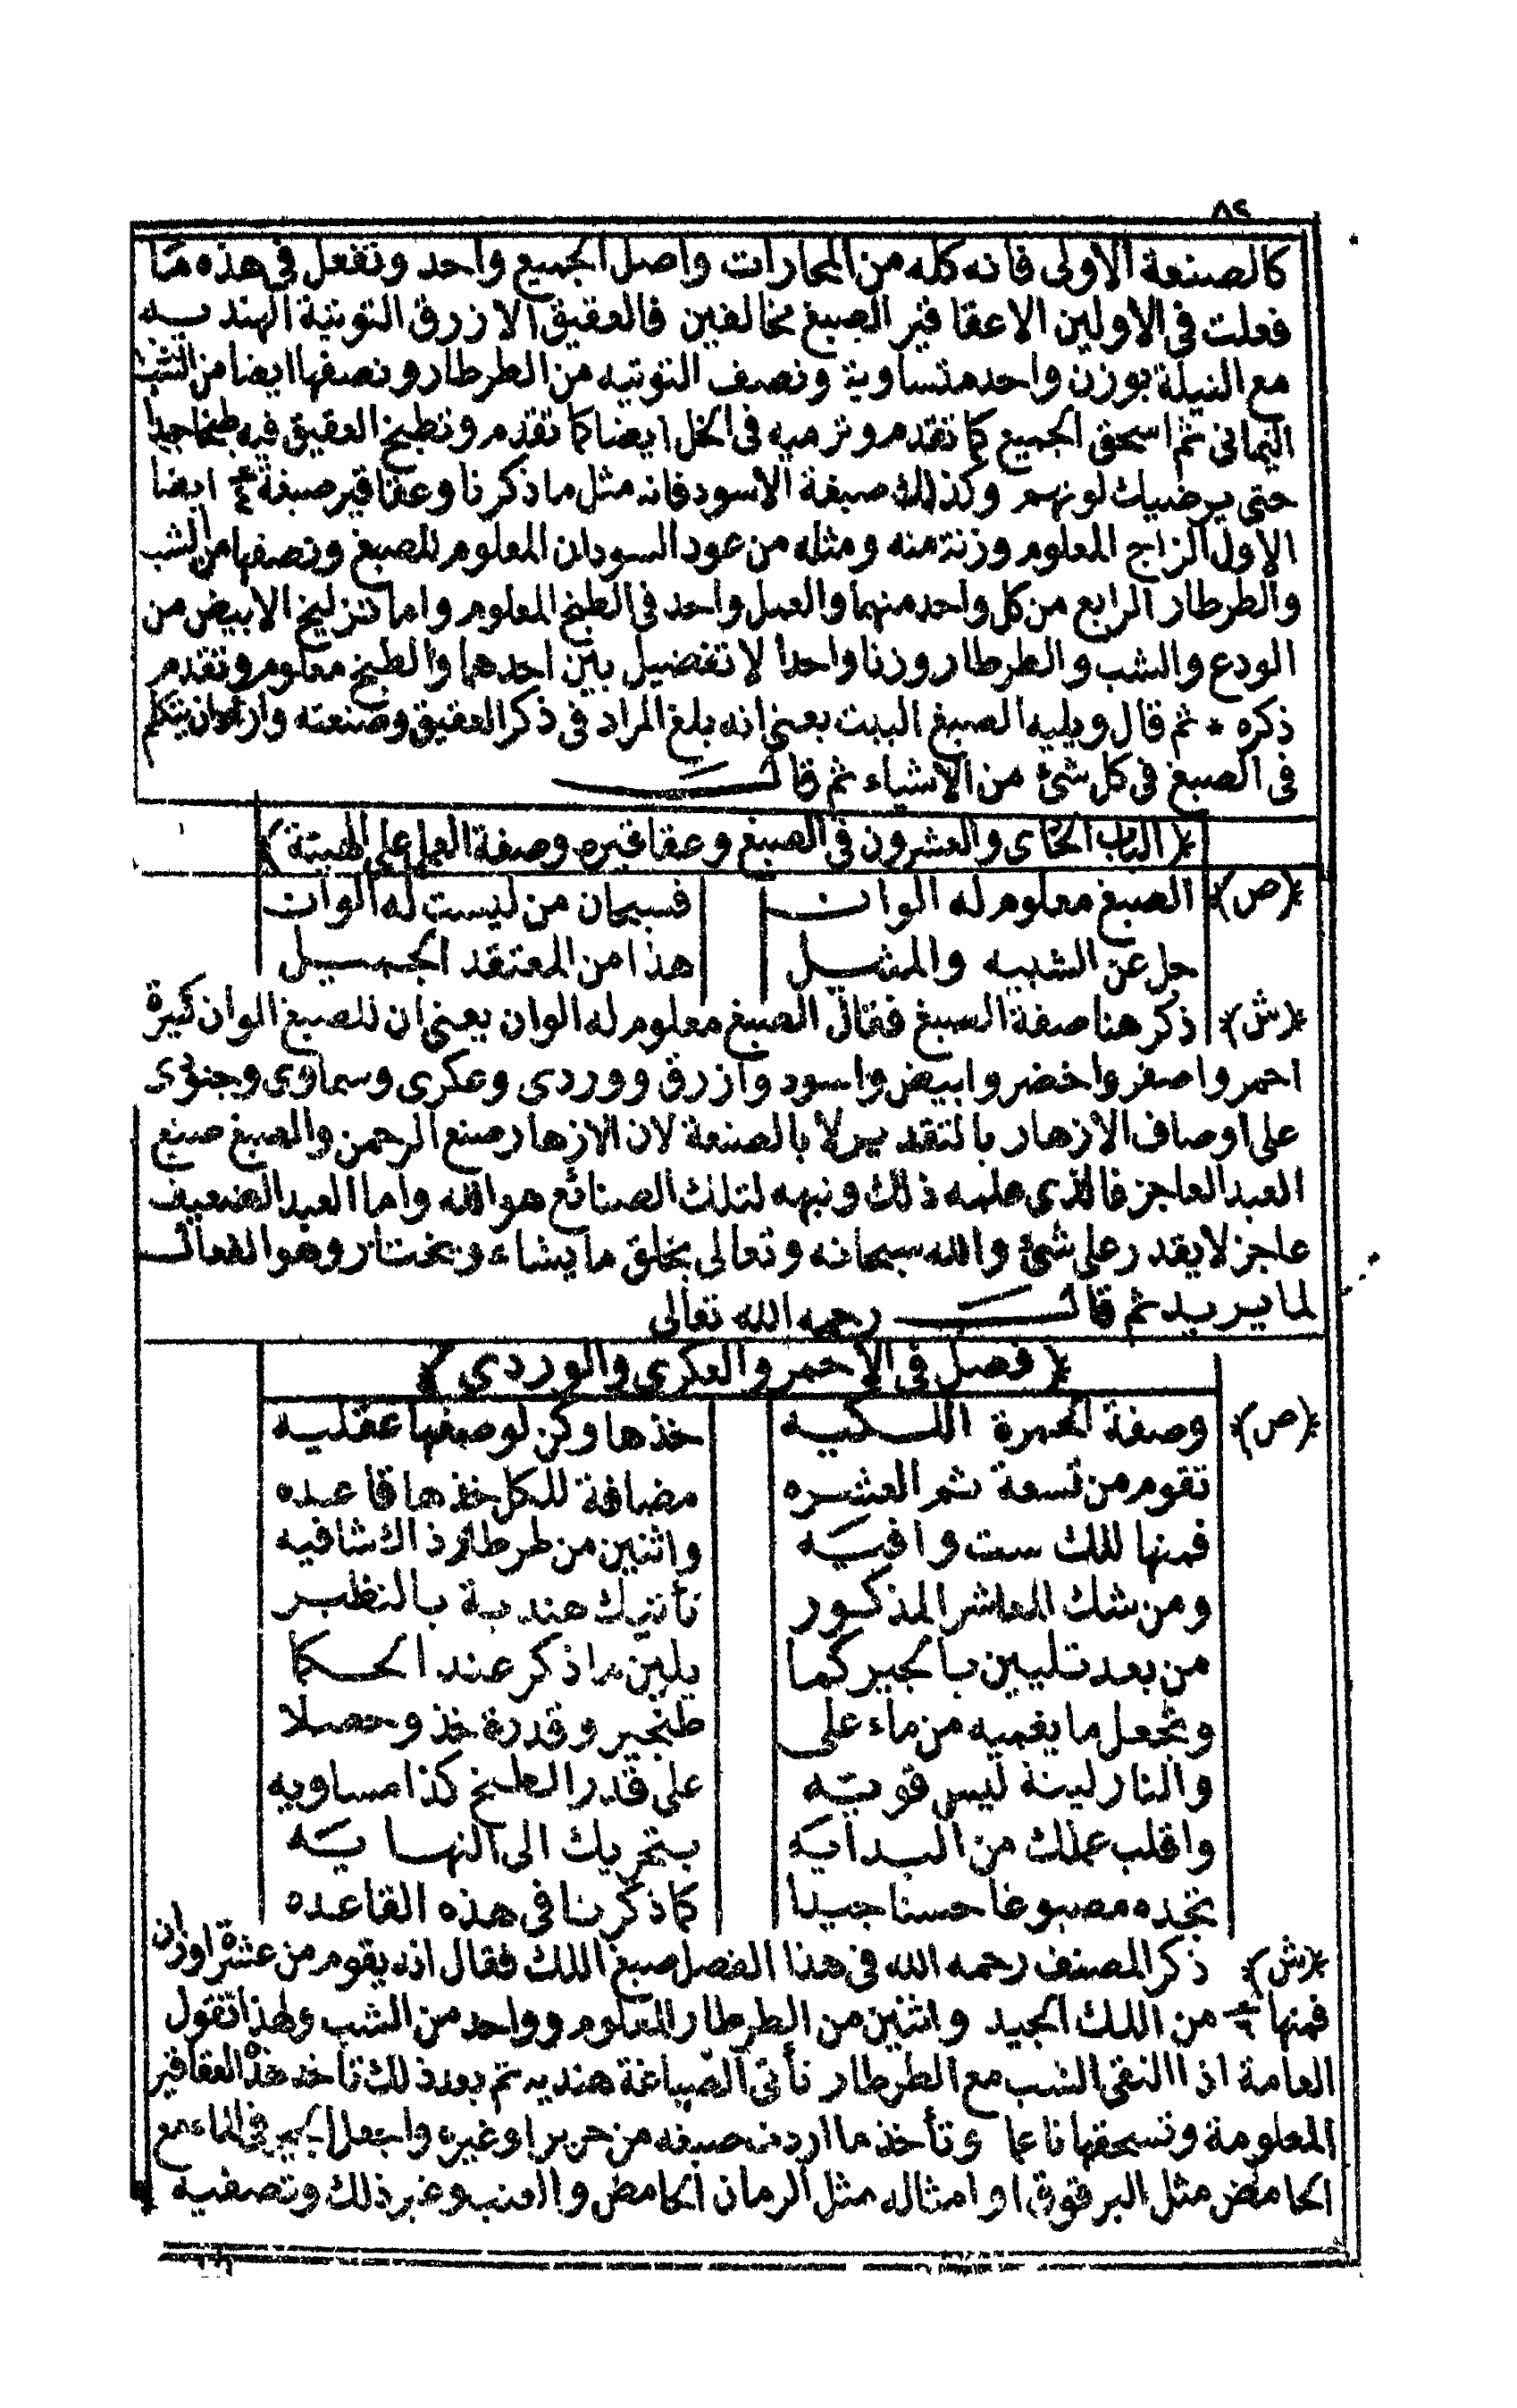 ٨٢
كالصنعة الاولى فانه كله من المحارات واصل الجميع واحد وتفعل فى هذه ما
فعلت فى الاولين الاعقاقير الصبغ مخالفين فالعقيق الازرق التوتية الهنديه
مع النيلة بوزن واحد متساوية ونصف التوتيه من الطرطار ونصفها ايضا من الشب
اليمانى ثم اسحق الجميع كما تقدم وترميه فى الخل ايضا كما تقدم وتطبخ العقيق فيه طبخا جيدا
حتى يرضيك لونهم وكذلك صبغة الاسود فانه مثل ما ذكرنا وعقاقير صبغة ايضا
الاول الزاج المعلوم وزنة منه ومثله من عود السودان المعلوم للصبغ ونصفها من الشب
والطرطار الرابع من كل واحد منهما والعمل واحد فى الطبخ المعلوم واما تزليخ الابيض من
الودع والشب والطرطار وزنا واحدا لا تفضيل بين احدهما والطبخ معلوم وتقدم
ذكره * ثم قال ويليه الصبغ البيت يعنى انه بلغ المراد فى ذكر العقيق وصنعته واراد ان يتكلم
فى الصبغ فى كل شئ من الاشياء ثم قال
﴿الباب الحادى والعشرون فى الصبغ وعقاقيره وصفة العمل على الهيئة﴾
﴿ص﴾ الصبغ معلوم له الوان فسبحان من ليست له الوان
جل عن الشبيه والمثيل هذا من المعتقد الجميل
﴿ش﴾ ذكر هنا صفة السبغ فقال الصبغ معلوم له الوان يعنى ان للصبغ الوان كثيرة
احمر واصفر واخضر وابيض واسود وازرق ووردى وعكرى وسماوى وجنوى
على اوصاف الازهار بالتقدير لا بالصنعة لان الازهار صنع الرحمن والصبغ صنع
العبد العاجز فالذى علمه ذلك ونبهه لتلك الصنائع هو الله واما العبد الضعيف
عاجز لا يقدر على شئ والله سبحانه وتعالى يخلق ما يشاء ويختار وهو الفعال
لما يريد ثم قال رحمه الله تعالى
﴿فصل فى الاحمر والعكرى والوردى﴾
﴿ص﴾ وصفة لحمرة اللكيه خذها وكن لوصفها عقليه
تقوم من تسعة ثم العشره مضافة للكل خذها قاعده
فمنها للك ست وافيه واثنين من طرطار ذاك شافيه
ومن شك العاشر المذكور تأتيك هندية بالنظير
من بعد تليين بالجير كما يلين ما ذكر عند الحكما
وتجعل ما يغميه من ماء على طنجير وقدرة خذ وحصلا
والنار لينة ليس قويه على قدر الطبخ كذا مساويه
واقلب عملك من البدايه بتحريك الى النهايه
تجده مصبوغا حسنا جيدا كما ذكرنا فى هذه القاعده
﴿ش﴾ ذكر المصنف رحمه الله فى هذا الفصل صبغ اللك فقال انه يقوم من عشرة اوزان
فمنها من اللك الجيد واثنين من الطرطار المعلوم وواحد من الشب ولهذا تقول
العامة اذا التقى الشب مع الطرطار تأتى الصباغة هنديه ثم بعد ذلك تأخذ هذه العقاقير
المعلومة وتسحقها ناعما وتأخذ ما اردت صبغه من حرير او غيره واجعل الجير فى الماء مع
الحامض مثل البرقوق او امثاله مثل الرمان الحامض والعنب وغير ذلك وتصفيه